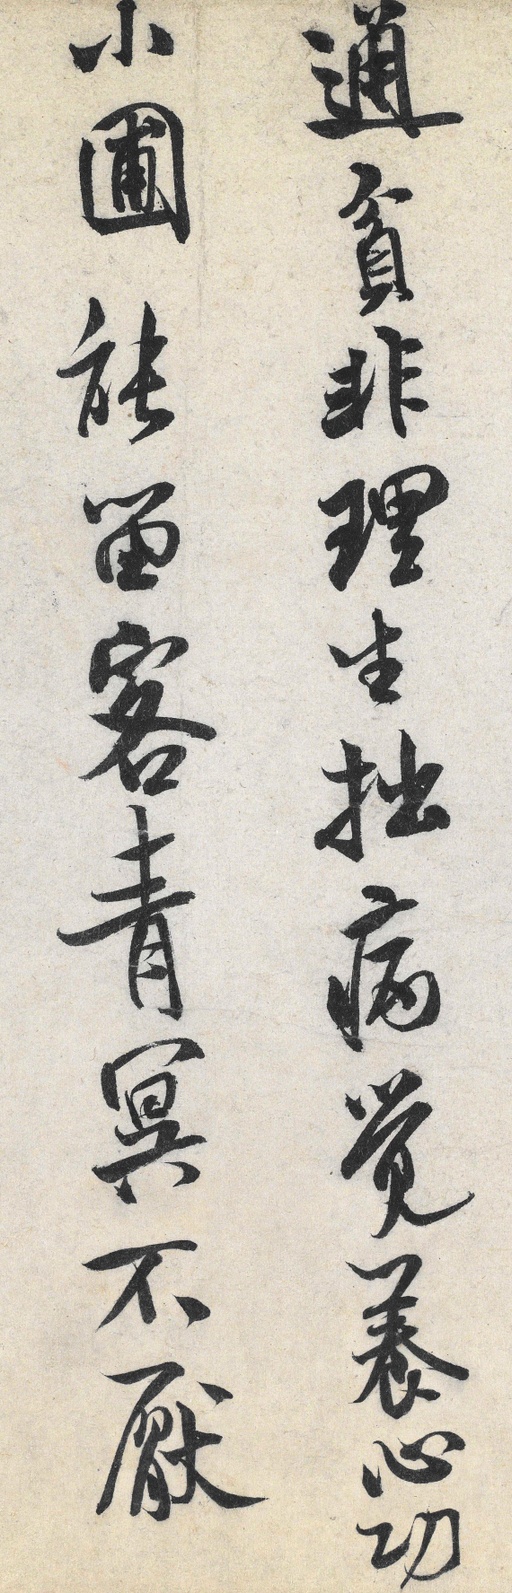 通貧非理生拙病覺養心功
小圃能留客青冥不厭